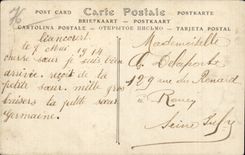 H
POST CARD Carte Postale POSTKARTE
BRIEFKAART ОТКРЫТОЕ ПИСЬМО POSTKAART
CARTOLINA POSTALE TARJETA POSTAL
le 8 Mai 1914
suis bien
arrivée. reçoit de la
petite sœur mille gros
baisers la petite sœur
Germaine.
Mademoiselle
G. Delaporte
129 rue du Renard
à Rouen
Seine Infre